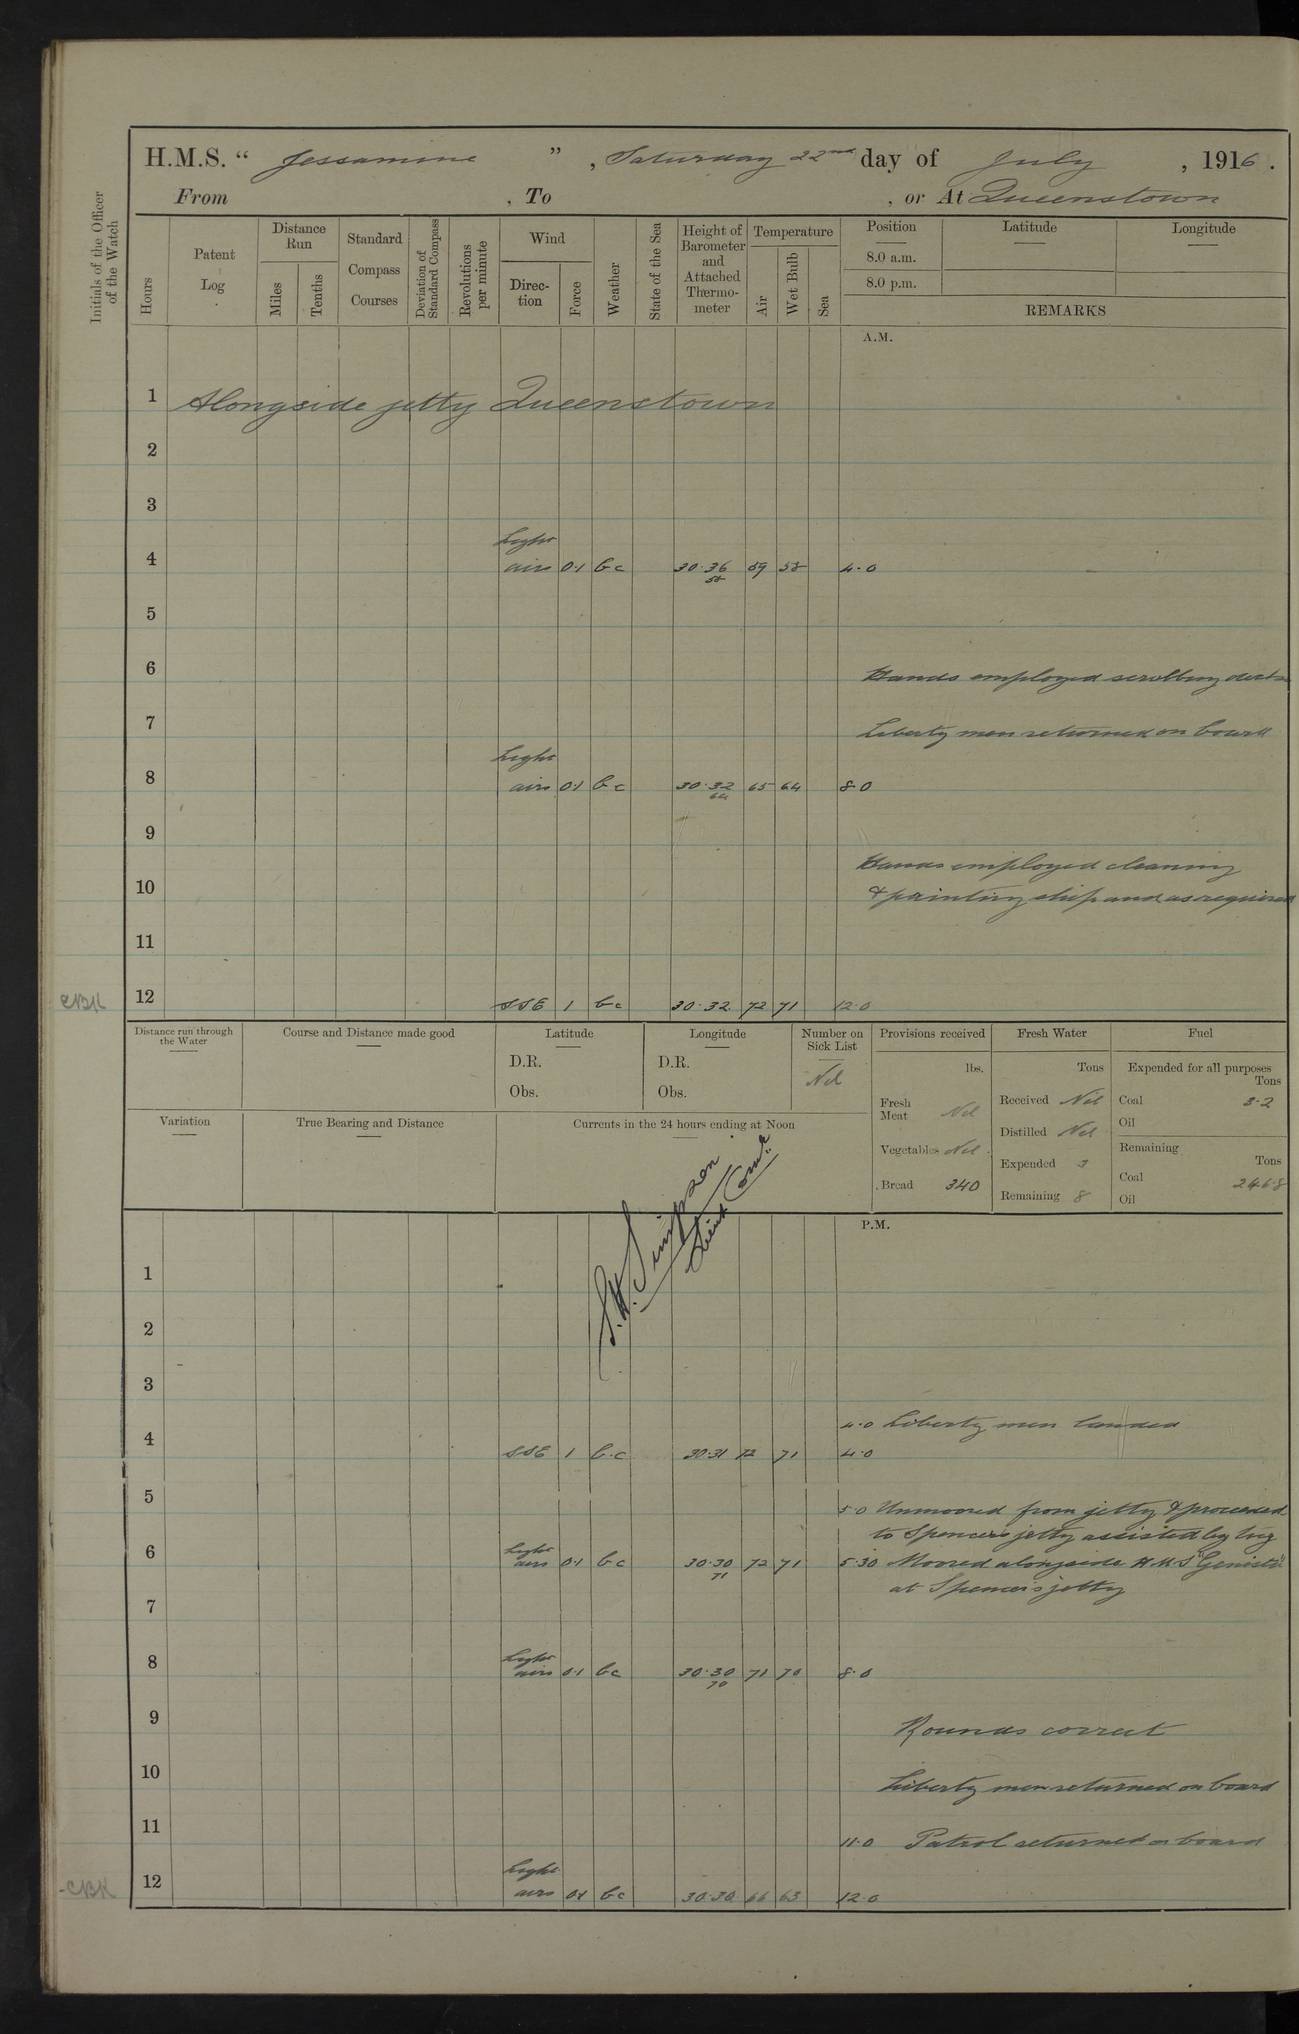 H.M.S. “ Jessamine ” , Saturday 22nd day of July , 1916 .
From , To , or At Queenstown
Initials of the Officer of the Watch
Hours
Patent Log
Distance Run
Miles
Tenths
Standard Compass Courses
Deviation of Standard Compass
Revolutions per minute
Wind
Direction
Force
Weather
State of the Sea
Height of Barometer and Attached Thermometer
Temperature
Air
Wet Bulb
Sea
Position
8.0 a.m.
8.0 p.m.
Latitude
Longitude
REMARKS
A.M.
1 Alongside jetty Queenstown
2
3
Light
4 airs 0.1 bc 30.36 59 58 4.0
58
5
6 Hands employed scrubbing decks
7 Liberty men returned on board
Light
8 airs 0.1 bc 30.32 65 64 8.0
64
9
Hands employed cleaning
10 & painting ship and as required
11
CBK 12 SSE 1 bc 30.32 72 71 12.0
Distance run through the Water
Course and Distance made good
Latitude
D.R.
Obs.
Longitude
D.R.
Obs.
Number on Sick List
Nil
Provisions received
lbs.
Fresh Meat Nil
Vegetables Nil
Bread 340
Fresh Water
Tons
Received Nil
Distilled Nil
Expended 3
Remaining 8
Fuel
Expended for all purposes
Tons
Coal 3.2
Oil
Remaining
Tons
Coal 246.8
Oil
Variation
True Bearing and Distance
Currents in the 24 hours ending at Noon
S.H. Simpson
Lieut Comr.
P.M.
1
2
3
4.0 Liberty men landed
4 SSE 1 b.c 30.31 72 71 4.0
5
5.0 Unmoored from jetty & proceeded
to Spencer's jetty assisted by tug
6 Light airs 0.1 bc 30.30 72 71 5.30 Moored alongside H.M.S "Genista"
71
at Spencer's jetty
7
Light
8 airs 0.1 bc 30.30 71 70 8.0
70
9 Rounds correct
10 Liberty men returned on board
11 11.0 Patrol returned on board
Light
CBK 12 airs 0.1 bc 30.30 66 63 12.0